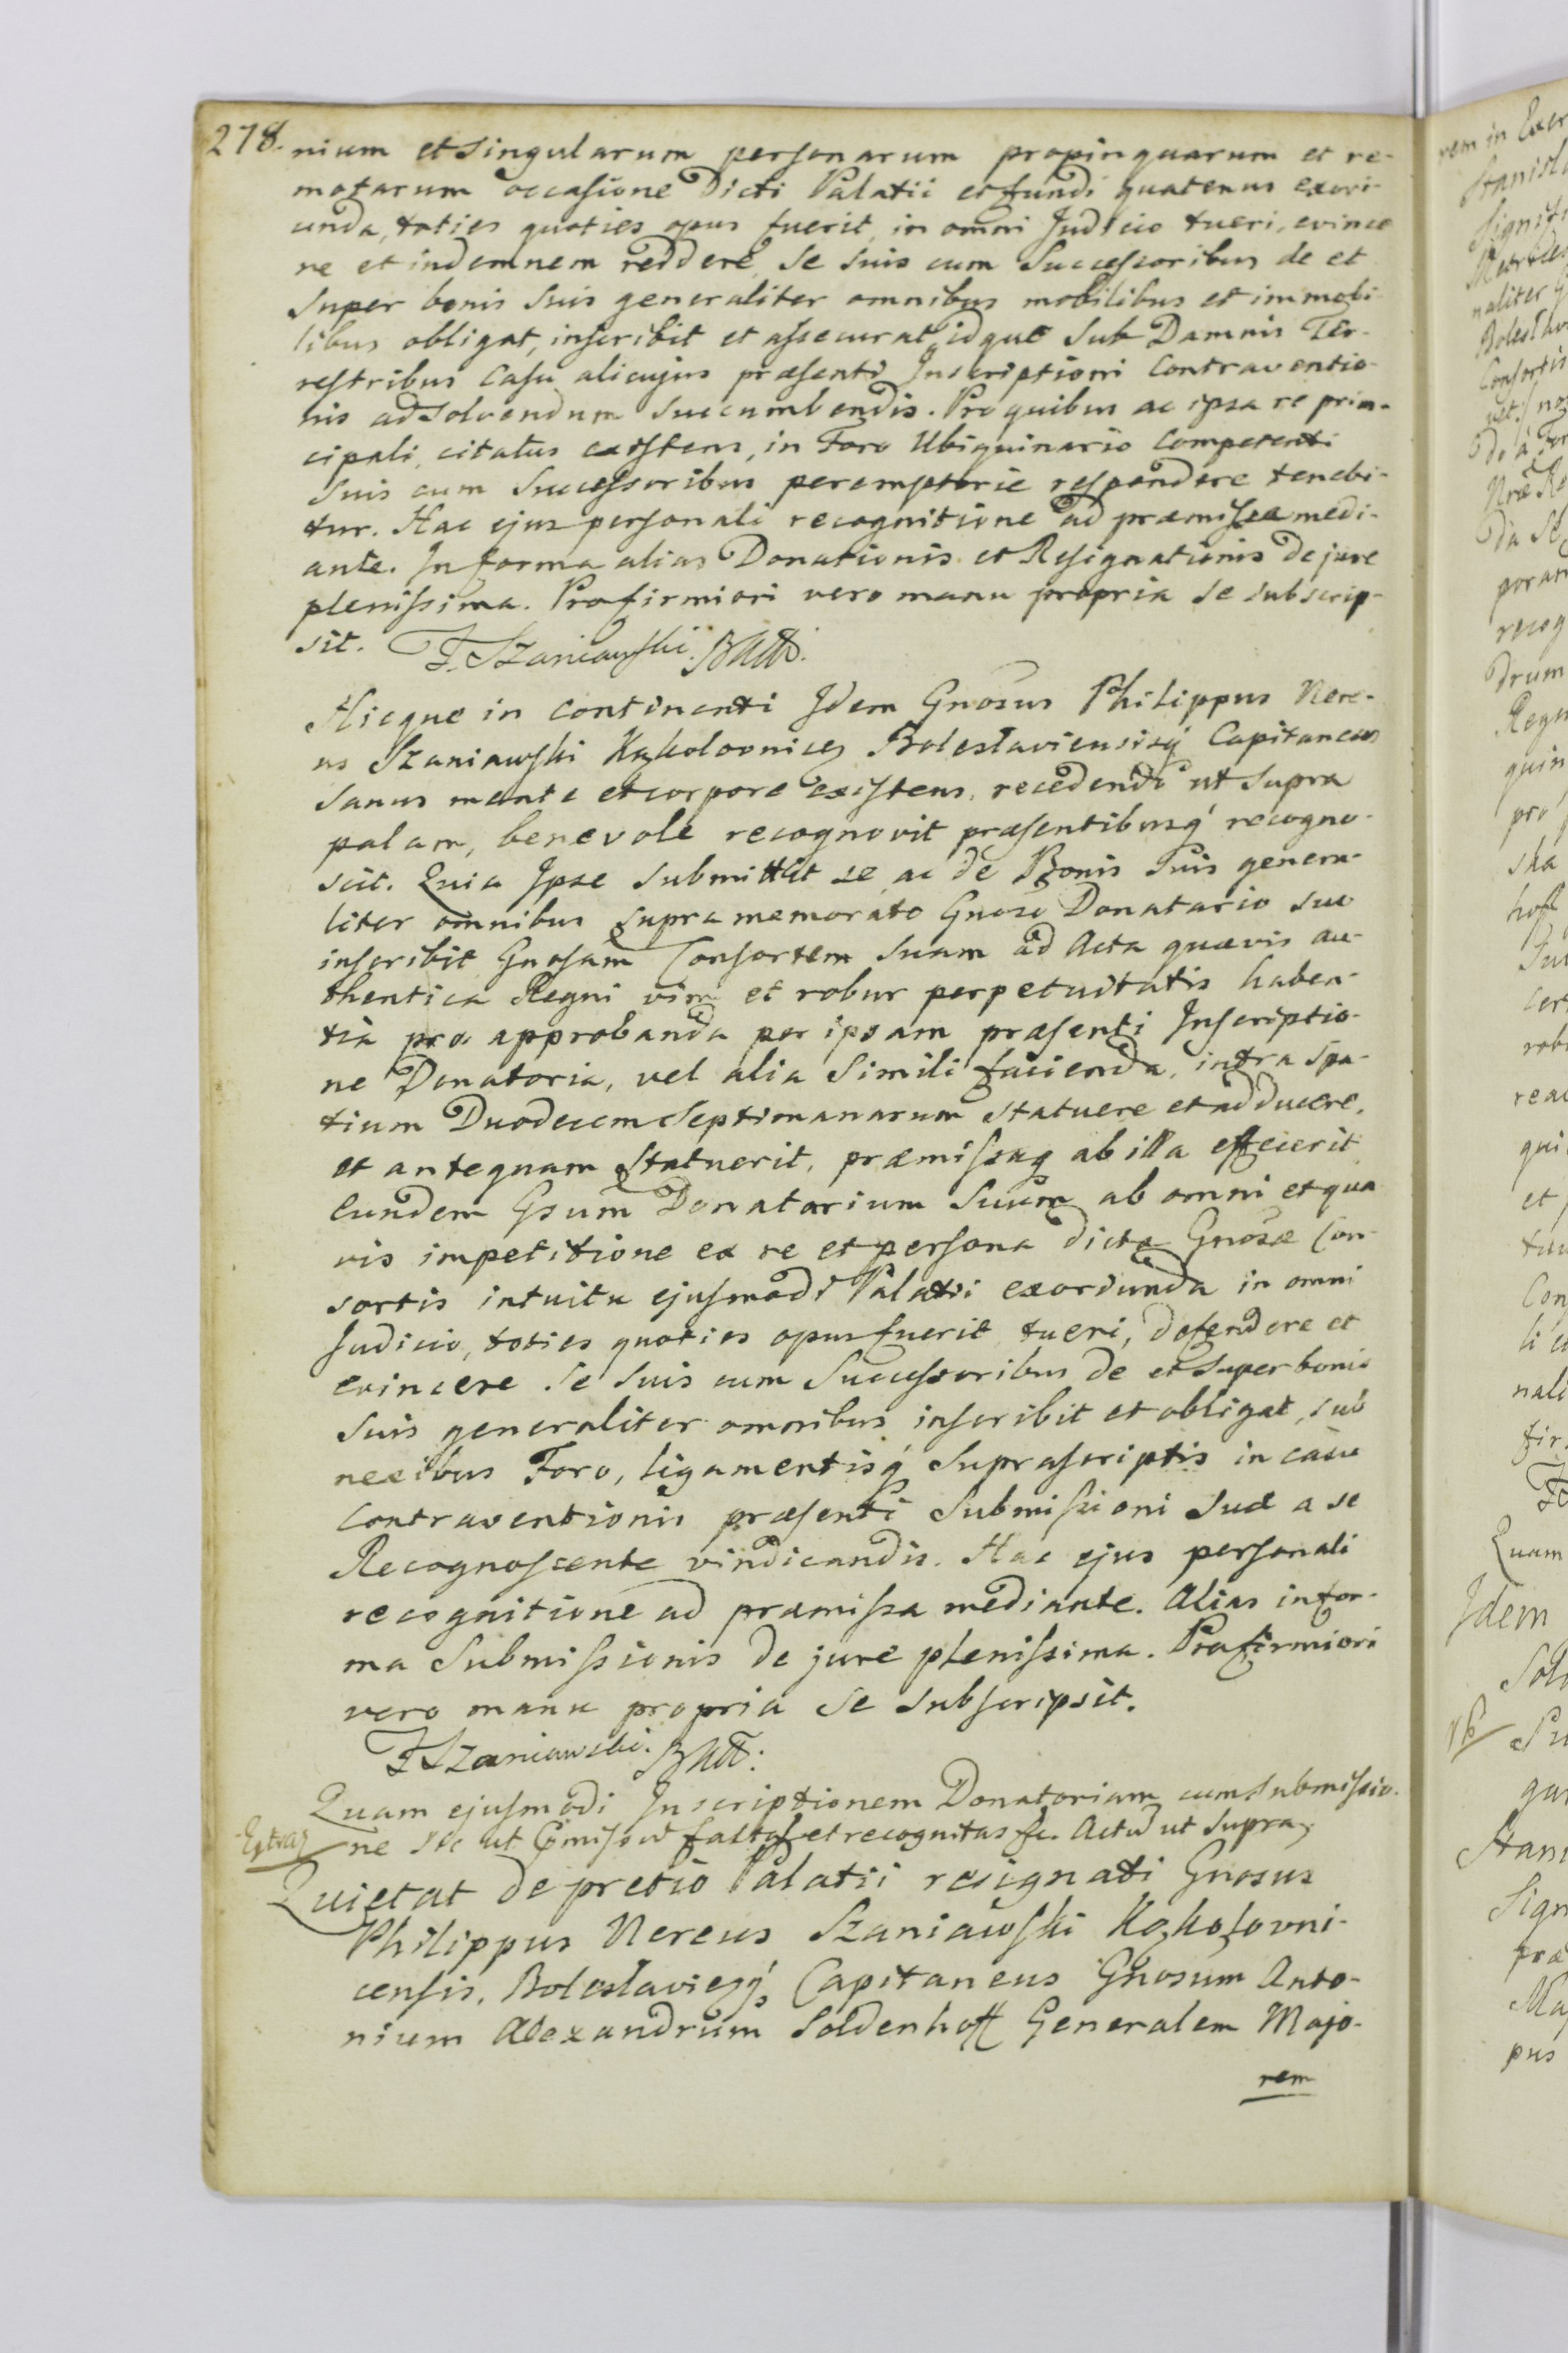 278. nium et singularum personarum propinquarum et re-
motarum occasione Dicti Palatii et fundi quatenus exori-
unda, toties quoties opus fuerit, in omni Judicio tueri, evince
re et indemnem reddere, se suis cum Successoribus de et
super bonis suis generaliter omnibus mobilibus et immobi
libus obligat, inscribit et assecurat, idque sub Damnis Ter-
restribus Casu alicujus præsenti Inscriptioni Contraventio-
nis ad solvendum succumbendis. Pro quibus ac ipsa re prin-
cipali, citatus existens, in Foro Ubiquinario Competenti
suis cum Successoribus peremptorie respondere tenebi-
tur. Hac ejus personali recognitione ad præmissa medi-
ante. In forma alias Donationis et Resignationis de jure
plenissima. Pro firmiori vero manu propria se subscrip-
sit. F. Szaniawski.
Hicque in continenti Idem Gnosus Philippus Nere-
us Szaniawski Kąkolovnicẽ Boleslaviensisq́ Capitaneus
sanus mente et corpore existens, recedendo ut supra
palam, benevole recognovit præsentibusq́ recogno-
scit. Quia Ipse submittit se ac de Bonis suis genera-
liter omnibus supra memorato Gnoso Donatario suo
inscribit Gnosam Consortem suam ad Acta quævis au-
thentica Regni vim et robur perpetuitatis haben-
tia pro approbanda per ipsam præsenti Inscriptio-
ne Donatoria, vel alia simili facienda, intra spa-
tium Duodecem Septimanarum statuere et adducere,
et antequam statuerit, præmissaq ab illa effecerit
Eundem Gsum Donatarium suum ab omni et qua
vis impetitione ex re et persona dictæ Gnosæ Con-
sortis intuitu ejusmodi Palatii exoriunda in omni
Judicio, toties quoties opus fuerit tueri, defendere et
evincere se suis cum Successoribus de et super bonis
suis generaliter omnibus inscribit et obligat, sub
nexibus Foro, ligamentisq́ suprascriptis in casu
Contraventionis præsenti Submissioni suæ a se
Recognoscente vindicandis. Hac ejus personali
recognitione ad præmissa mediante. Alias in for-
ma Submissionis de jure plenissima. Pro firmiori
vero manu propria se subscripsit.
F Szaniawski.
Quam ejusmodi Inscriptionem Donatoriam cum submissio-
ne ut et recognitas Actũ ut supra
Quietat de pretio Palatii resignati Gnosus
Philippus Nereus Szaniawski Kąkolovni-
censis, Boleslavieq́ Capitaneus Gnosum Anto-
nium Alexandrum Soldenhoff Generalem Majo-
rem